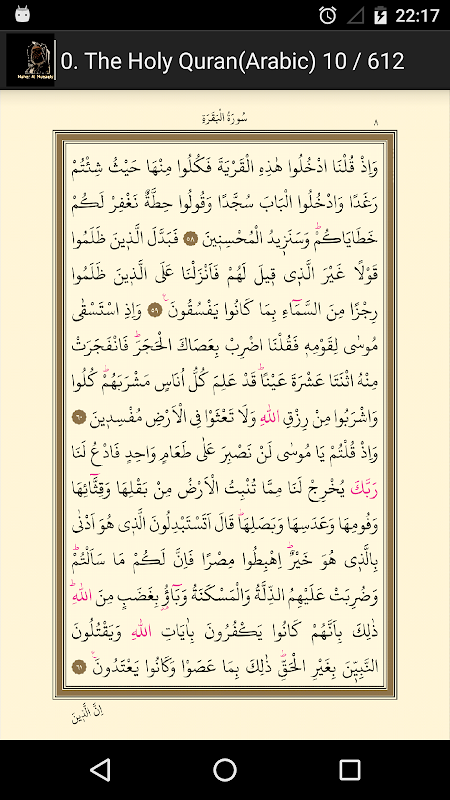 22:17
0. The Holy Quran(Arabic) 10 / 612
سُورَةُ الْبَقَرَةِ ٨
وَاِذْ قُلْنَا ادْخُلُوا هٰذِهِ الْقَرْيَةَ فَكُلُوا مِنْهَا حَيْثُ شِئْتُمْ
رَغَدًا وَادْخُلُوا الْبَابَ سُجَّدًا وَقُولُوا حِطَّةٌ نَغْفِرْ لَكُمْ
خَطَايَاكُمْۜ وَسَنَزِيدُ الْمُحْسِنِينَ ٥٨ فَبَدَّلَ الَّذِينَ ظَلَمُوا
قَوْلًا غَيْرَ الَّذِي قِيلَ لَهُمْ فَاَنْزَلْنَا عَلَى الَّذِينَ ظَلَمُوا
رِجْزًا مِنَ السَّمَٓاءِ بِمَا كَانُوا يَفْسُقُونَ۟ ٥٩ وَاِذِ اسْتَسْقٰى
مُوسٰى لِقَوْمِهٖ فَقُلْنَا اضْرِبْ بِعَصَاكَ الْحَجَرَۜ فَانْفَجَرَتْ
مِنْهُ اثْنَتَا عَشْرَةَ عَيْنًاۜ قَدْ عَلِمَ كُلُّ اُنَاسٍ مَشْرَبَهُمْۜ كُلُوا
وَاشْرَبُوا مِنْ رِزْقِ اللّٰهِ وَلَا تَعْثَوْا فِي الْاَرْضِ مُفْسِدِينَ ٦٠
وَاِذْ قُلْتُمْ يَا مُوسٰى لَنْ نَصْبِرَ عَلٰى طَعَامٍ وَاحِدٍ فَادْعُ لَنَا
رَبَّكَ يُخْرِجْ لَنَا مِمَّا تُنْبِتُ الْاَرْضُ مِنْ بَقْلِهَا وَقِثَّٓائِهَا
وَفُومِهَا وَعَدَسِهَا وَبَصَلِهَاۜ قَالَ اَتَسْتَبْدِلُونَ الَّذِي هُوَ اَدْنٰى
بِالَّذِي هُوَ خَيْرٌۜ اِهْبِطُوا مِصْرًا فَاِنَّ لَكُمْ مَا سَاَلْتُمْۜ
وَضُرِبَتْ عَلَيْهِمُ الذِّلَّةُ وَالْمَسْكَنَةُ وَبَٓاؤُ۫ بِغَضَبٍ مِنَ اللّٰهِۜ
ذٰلِكَ بِاَنَّهُمْ كَانُوا يَكْفُرُونَ بِاٰيَاتِ اللّٰهِ وَيَقْتُلُونَ
النَّبِيّٖنَ بِغَيْرِ الْحَقِّۜ ذٰلِكَ بِمَا عَصَوْا وَكَانُوا يَعْتَدُونَ۟ ٦١
اِنَّ الَّذِينَ